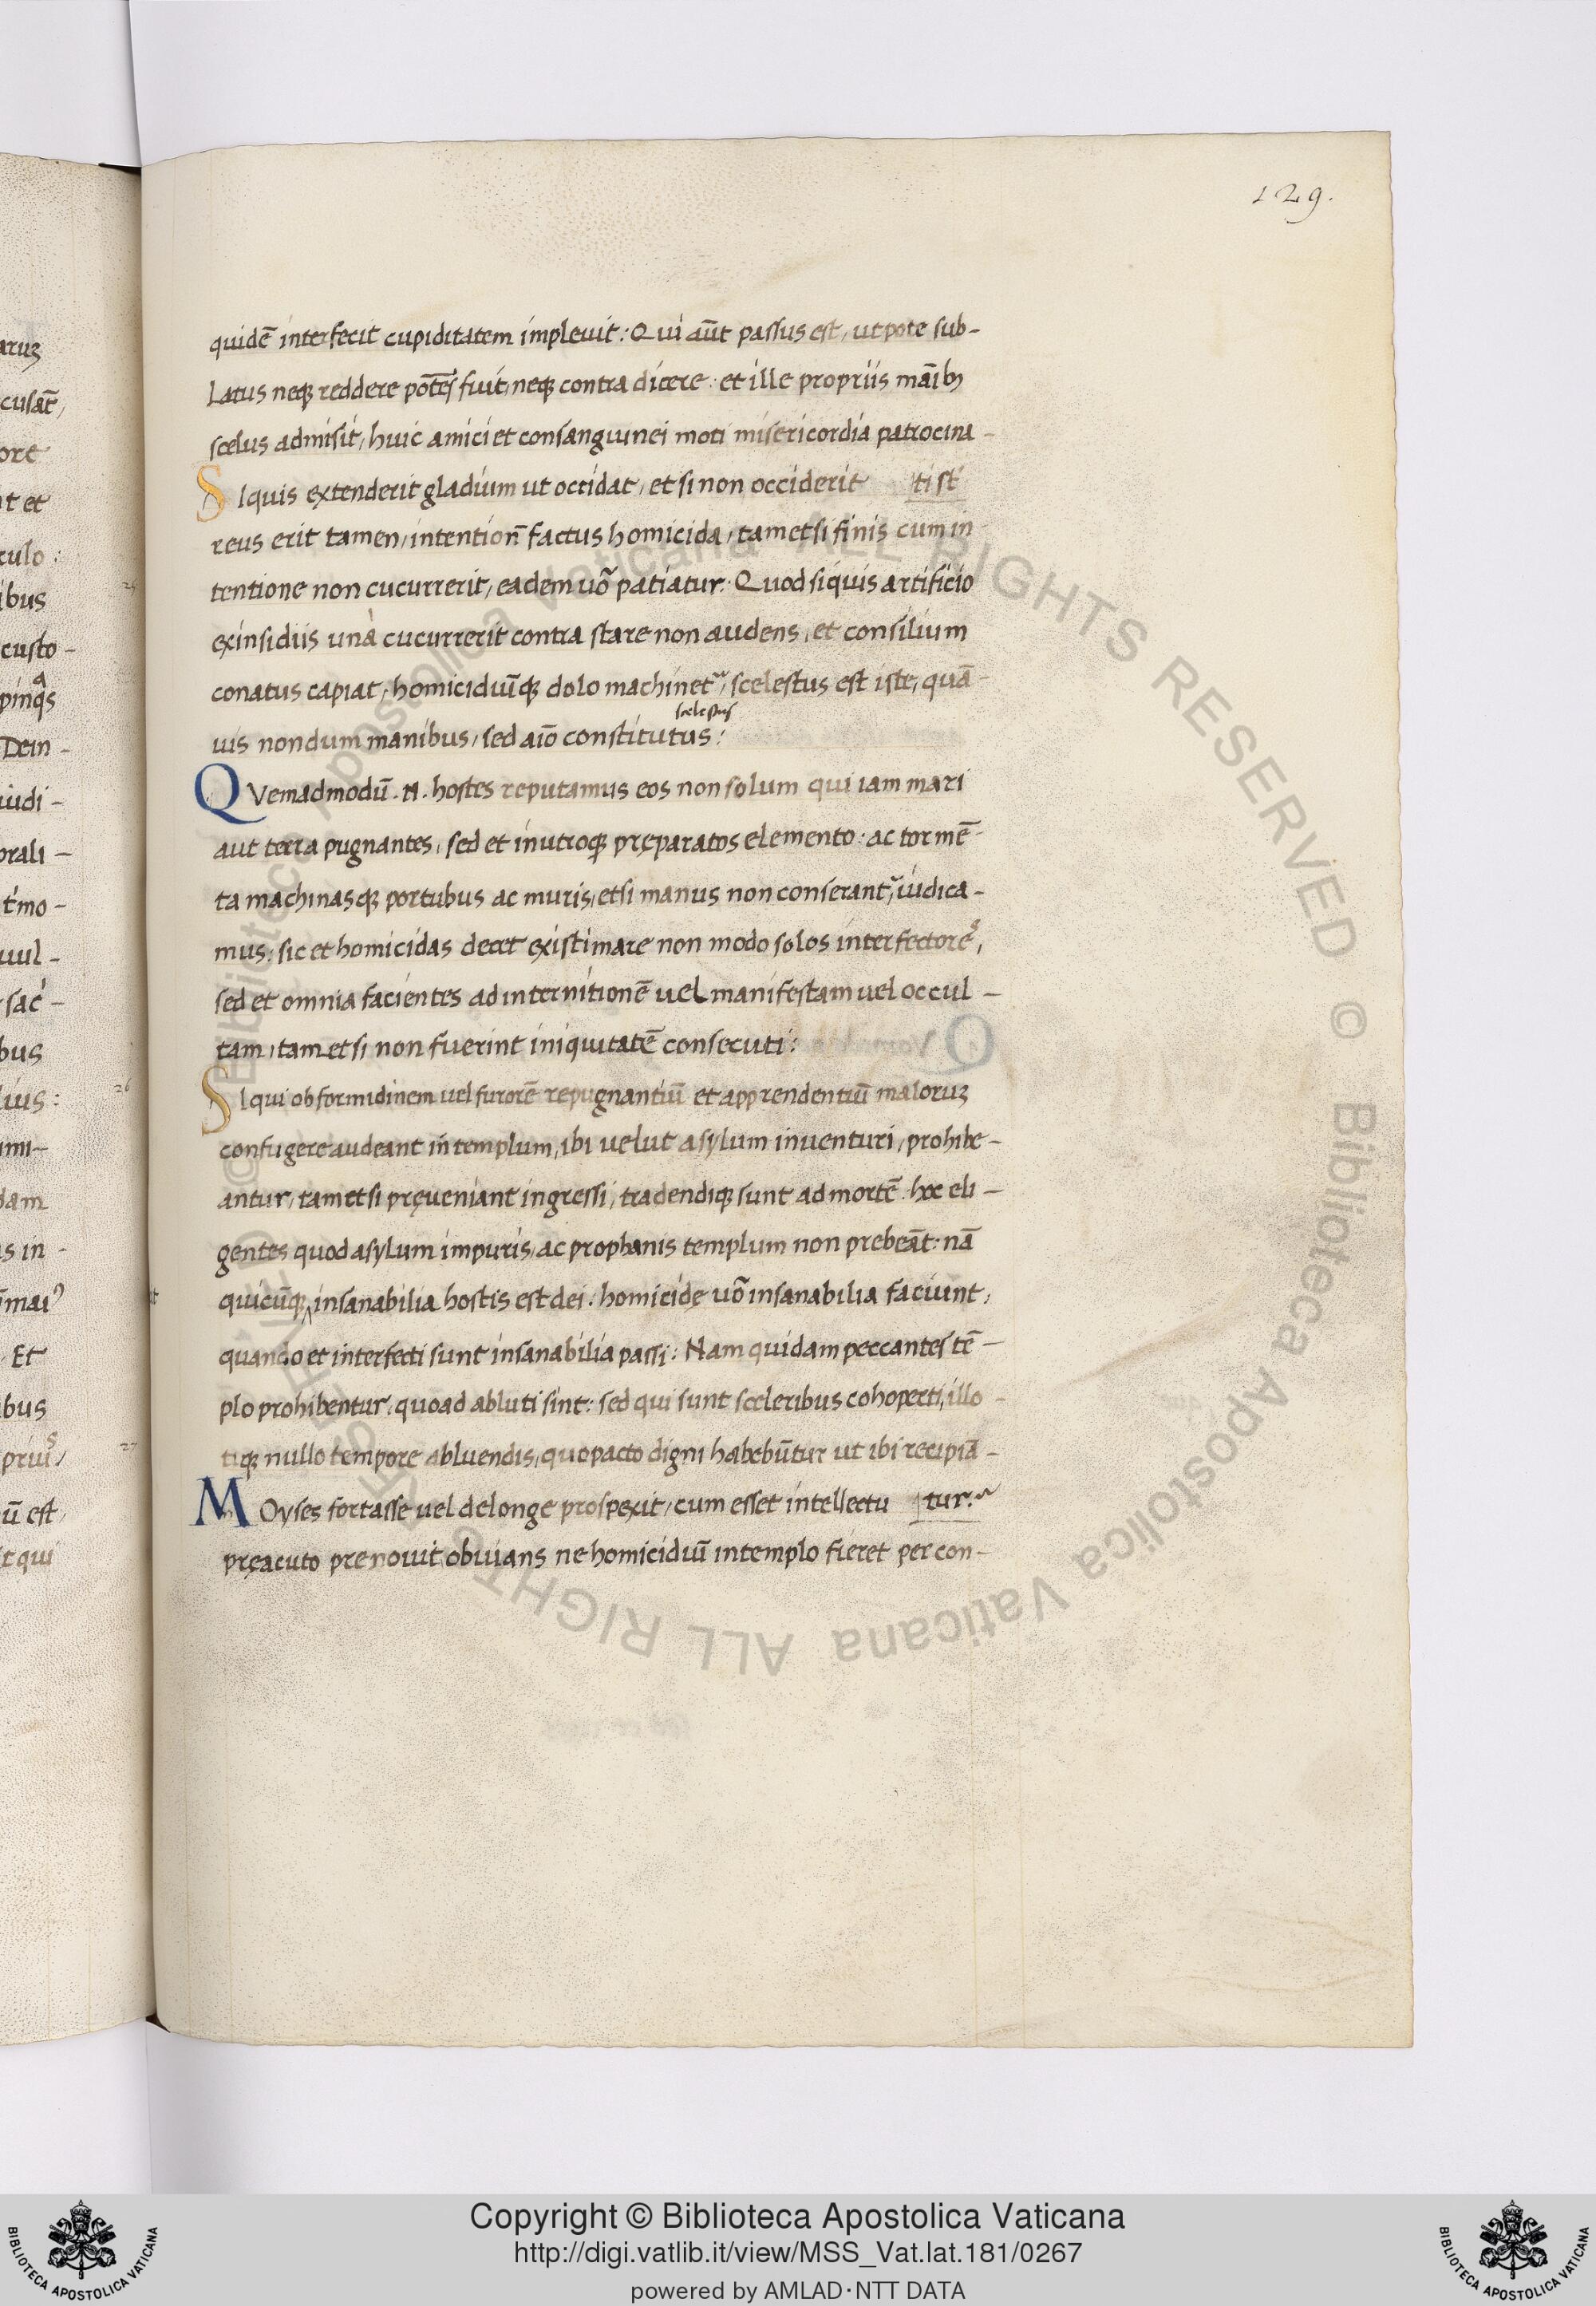 129.
quidē interfecit cupiditatem implevit: Qui aūt passus est, utpote sub-
Latus neq̨ reddere potēs fuit, neq̨ contra dicere: et ille propriis māibꝫ
scelus admisit, huic amici et consanguinei moti misericordia patrocina-
SIquis extenderit gladium ut occidat, et si non occiderit ti st
reus erit tamen, intention̄ factus homicida, tametsi finis cum in
tentione non cucurrerit, eadem uõ patiatur. Quod siquis artificio
exinsidiis unà cucurrerit contra stare non audens, et consilium
conatus capiat, homicidiūq̨ dolo machinet᷑, scelestus est iste, quā-
scelestus
uis nondum manibus, sed aīo constitutus:
QVemadmodū .N. hostes reputamus eos non solum qui iam mari
aut terra pugnantes, sed et inutroq̨ pręparatos elemento: ac tormē-
ta machinasq̨ portubus ac muris, etsi manus non conserant᷑, iudica-
mus: sic et homicidas decet existimare non modo solos interfectores,
sed et omnia facientes ad internitionē vel manifestam vel occul-
tam, tametsi non fuerint iniquitatē consecuti:
SIqui ob formidinem vel furorē repugnantiū et apprendentiū maloruꝫ
confugere audeant in templum, ibi velut asylum inventuri, prohibe-
antur, tametsi pręveniant ingressi, tradendiq̨ sunt ad mortē: hoc eli-
gentes quod asylum impuris, ac prophanis templum non prebeāt: nā
quicūq̨ insanabilia hostis est dei: homicidę uõ insanabilia faciunt,
quando et interfecti sunt insanabilia passi: Nam quidam peccantes tē-
plo prohibentur, quoad abluti sint: sed qui sunt sceleribus cohoperti, illo-
tiq̨ nullo tempore abluendis, quo pacto digni habebūtur ut ibi recipiā-
MOyses fortasse vel de longe prospexit, cum esset intellectu tur:~
pręacuto prenovit obvians ne homicidiū in templo fieret per con-
aruꝫ
ore
it et
culo:
ibus
custo-
Dein-
iudi-
orali-
tímo-
vul-
sac-
bus
lius:
imi-
dam
is in-
Et
ibus
ū est,
it qui
Copyright © Biblioteca Apostolica Vaticana
http://digi.vatlib.it/view/MSS_Vat.lat.181/0267
powered by AMLAD·NTT DATA
BIBLIOTECA APOSTOLICA VATICANA
BIBLIOTECA APOSTOLICA VATICANA
© Biblioteca Apostolica Vaticana ALL RIGHTS RESERVED © Biblioteca Apostolica Vaticana ALL RIGHTS RESERVED